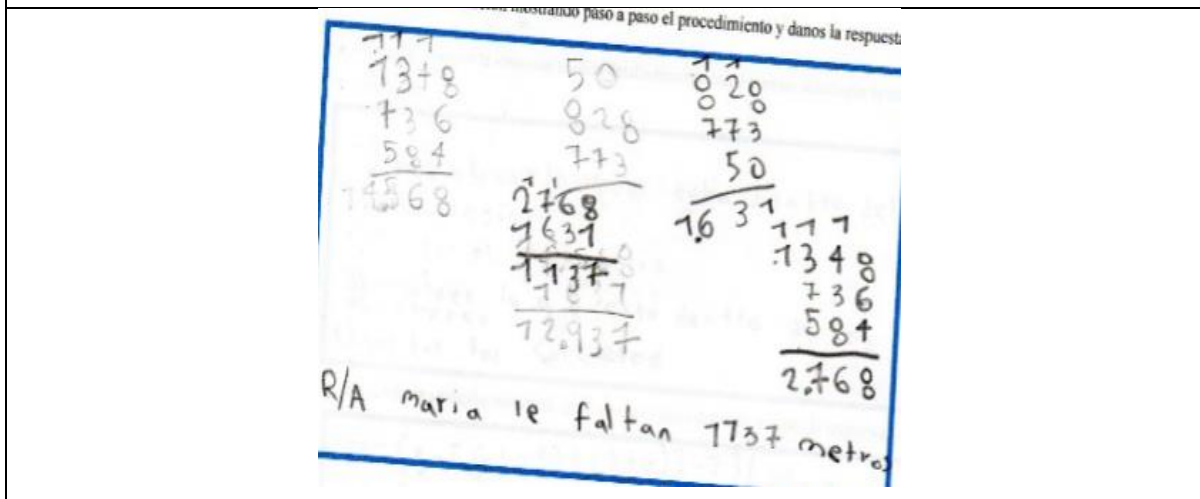 mostrando paso a paso el procedimiento y danos la respuesta
1 1 1
1348
736
584
14568
50
828
773
2768
1631
1137
12.937
1 1
828
773
50
1.631
1 1 1
1348
736
584
2.768
R/A maria le faltan 1137 metros